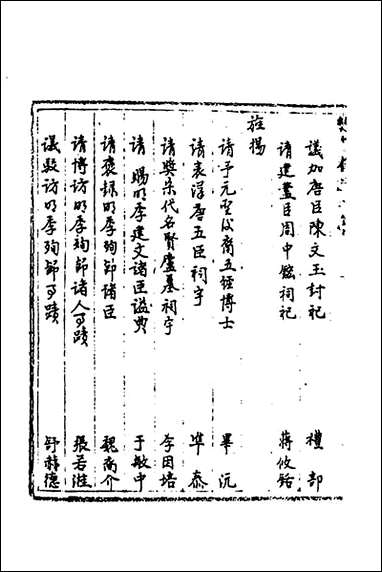 議加唐臣陳文玉封祀 禮部
請建藎臣周中鋐祠祀 蔣攸銛
旌揚
請予元聖後裔五經博士 畢沅
請表浮唐五臣祠宇 準泰
請奬宋代名賢廬墓祠宇 李因培
請賜明季建文諸臣謚典 于敏中
請褒錄明季殉節諸臣 魏裔介
請博访明季殉節諸人事蹟 張若淮
議敕访明季殉節事蹟 舒赫德